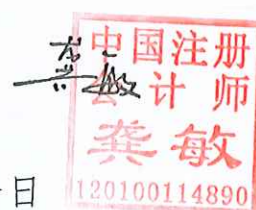 龚敏
中国注册
会计师
龚敏
120100114890
日